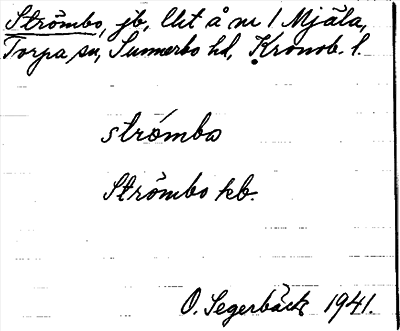 Strömbo, jb, lht å nr 1 Mjäla,
Torpa sn, Sunnerbo hd, Kronob. l.
strómba
Strömbo hb.
O. Segerbäck 1941.